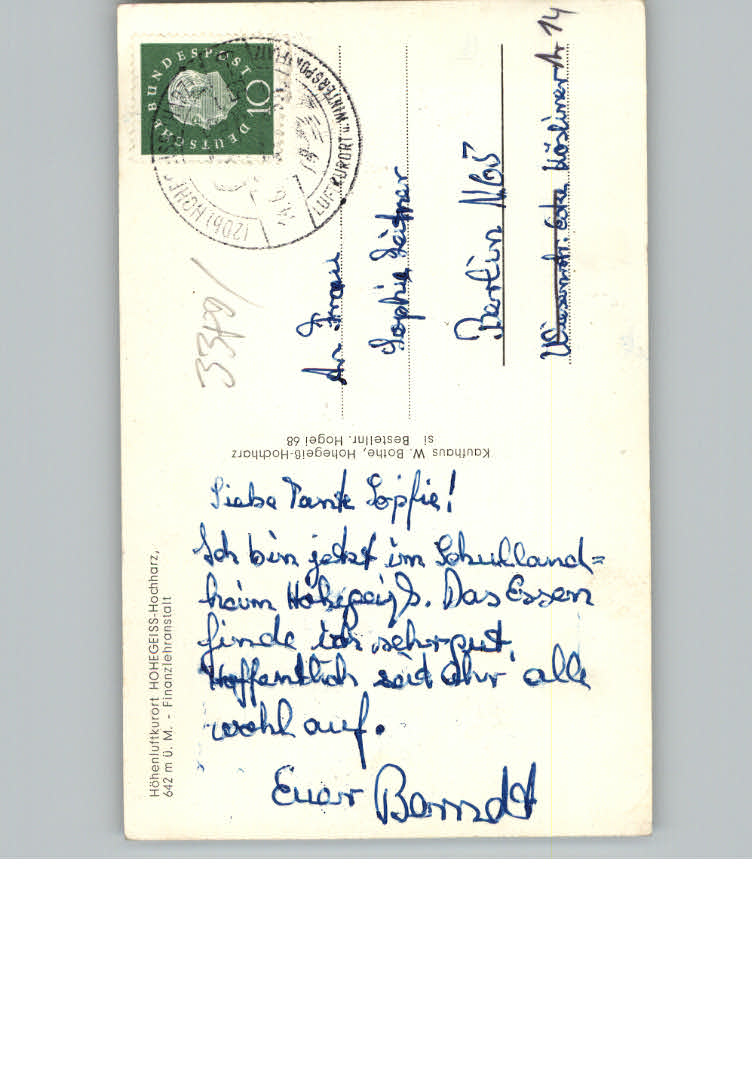 DEUTSCHE BUNDESPOST
10
(20b) HOHEGEISS
LUFTKURORT u. WINTERSPORTPLATZ
An Frau
Sophie
Berlin N65
Wiesenstr. Ecke Kösliner Nr 14
3379/
Kaufhaus W. Bothe, Hohegeiß-Hochharz
si Bestellnr. Hogei 68
Höhenluftkurort HOHEGEISS-Hochharz,
642 m ü. M. - Finanzlehranstalt
Liebe Tante Sophie!
Ich bin jetzt im Schulland=
heim Hohegeiß. Das Essen
finde ich sehr gut.
Hoffentlich seid Ihr alle
wohl auf.
Euer Berndt